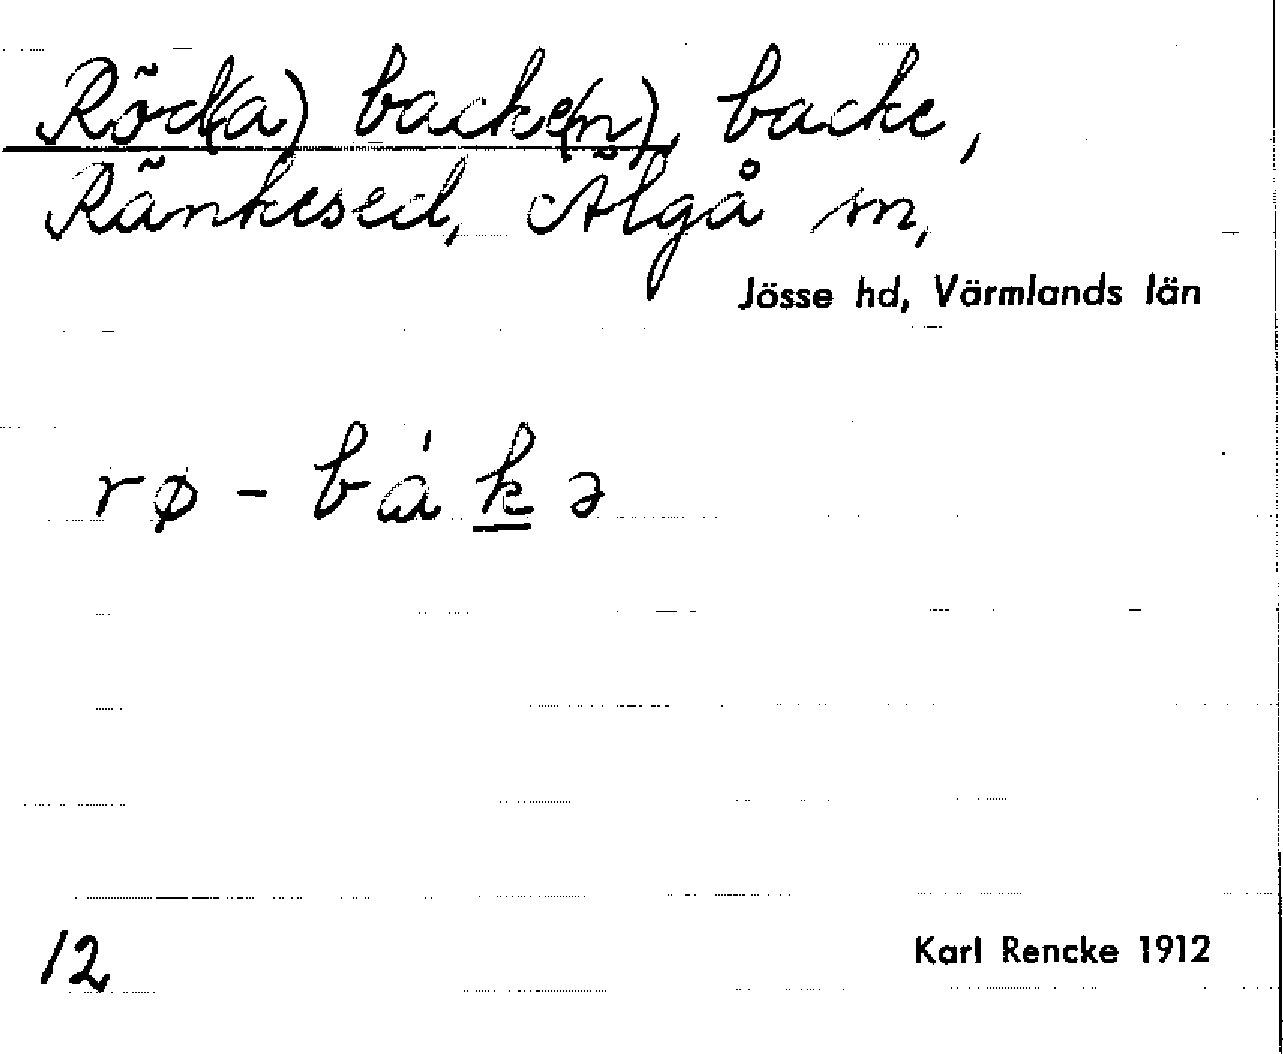 Röd(a) backe(n), backe,
Ränkesed, Älgå sn,
Jösse hd, Värmlands län
rø - bákə
12
Karl Rencke 1912